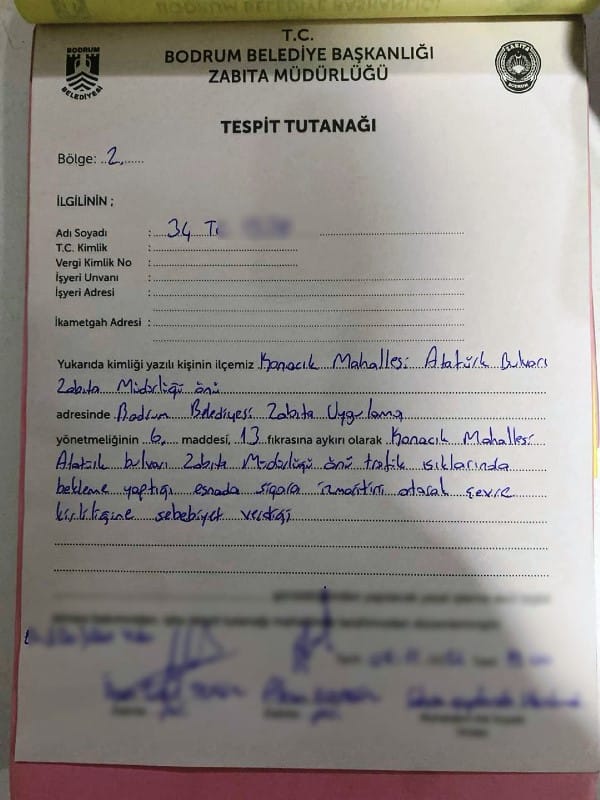 BODRUM
BELEDİYESİ
T.C.
BODRUM BELEDİYE BAŞKANLIĞI
ZABITA MÜDÜRLÜĞÜ
ZABITA
BODRUM
TESPİT TUTANAĞI
Bölge: 2
İLGİLİNİN ;
Adı Soyadı : 34 T
T.C. Kimlik :
Vergi Kimlik No :
İşyeri Unvanı :
İşyeri Adresi :
İkametgah Adresi :
Yukarıda kimliği yazılı kişinin ilçemiz Konacık Mahallesi Atatürk Bulvarı
Zabıta Müdürlüğü önü
adresinde Bodrum Belediyesi Zabıta Uygulama
yönetmeliğinin 6. maddesi, 13 fıkrasına aykırı olarak Konacık Mahallesi
Atatürk bulvarı Zabıta Müdürlüğü önü trafik ışıklarında
bekleme yaptığı esnada sigara izmaritini atarak çevre
kirliliğine sebebiyet verdiği